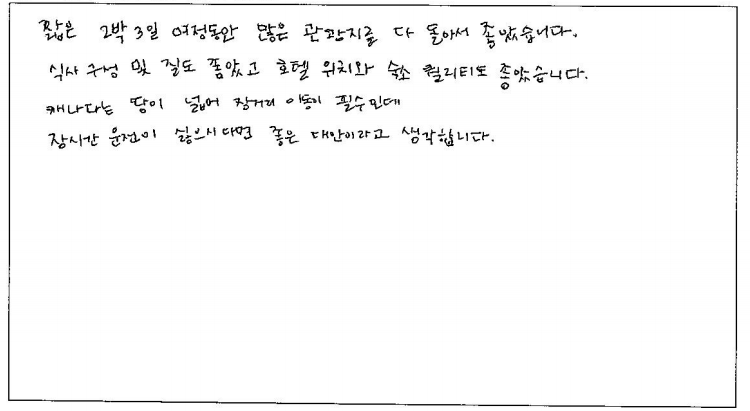 짧은 2박 3일 여정동안 많은 관광지를 다 돌아서 좋았습니다.
식사 구성 및 질도 좋았고 호텔 위치와 숙소 퀄리티도 좋았습니다.
캐나다는 땅이 넓어 장거리 이동이 필수인데
장시간 운전이 싫으시다면 좋은 대안이라고 생각합니다.